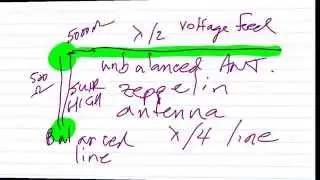 5000Ω λ/2 voltage feed
unbalanced ANT.
500Ω SWR HIGH zeppelin
antenna
Balanced λ/4 line
line